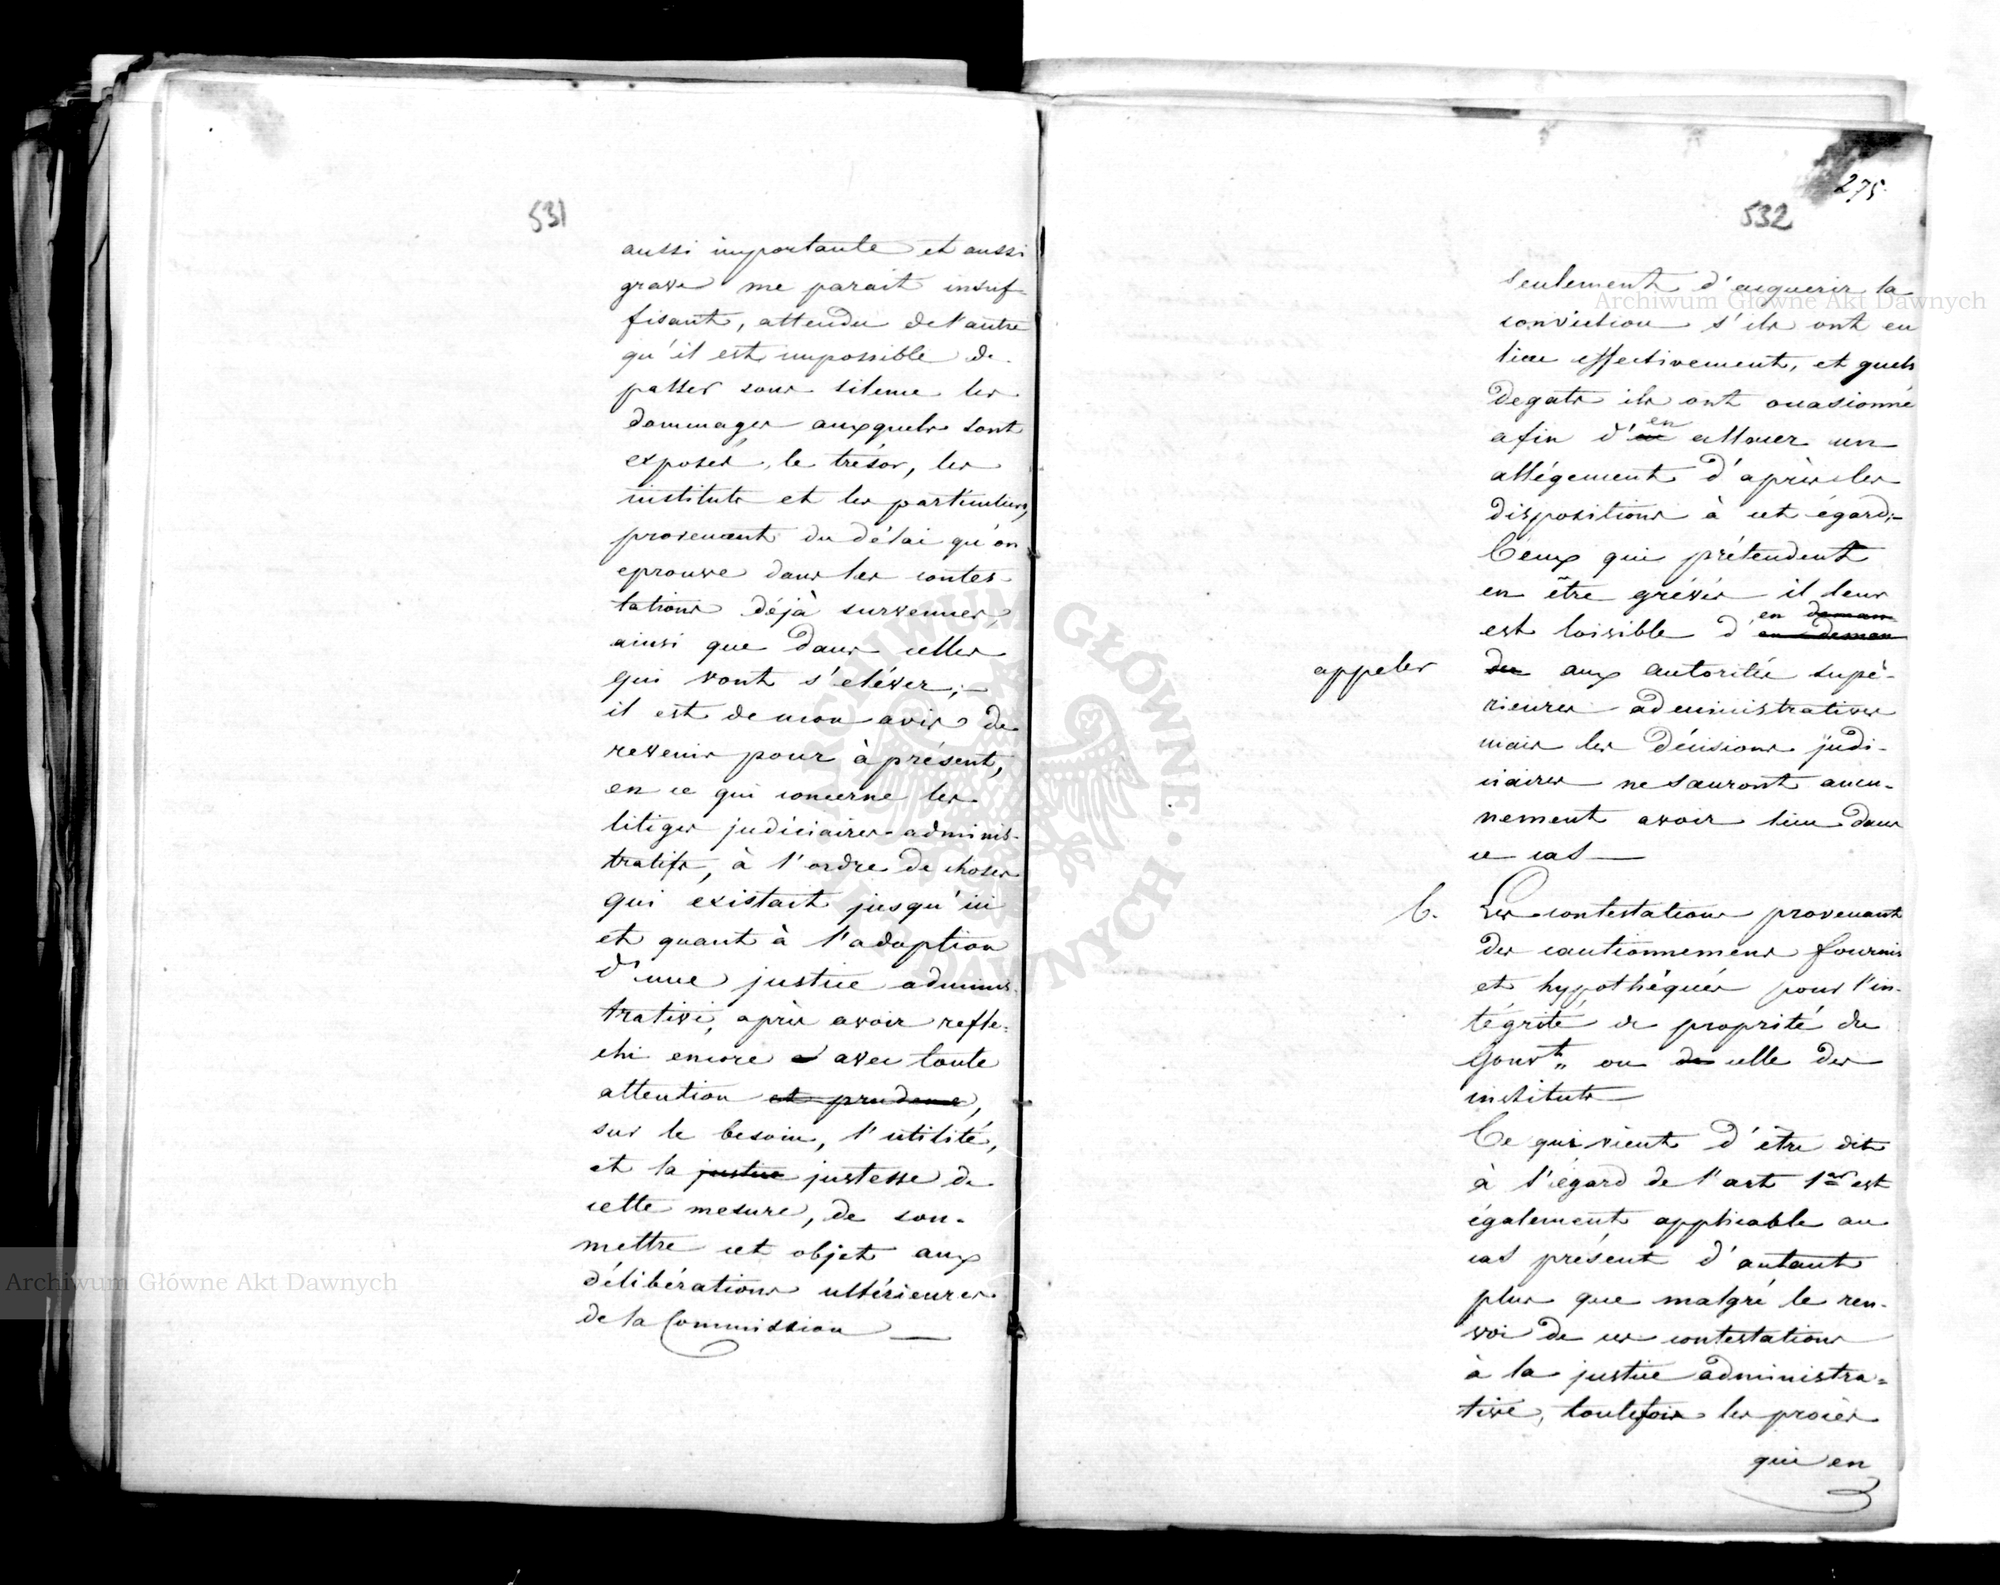 531
aussi importante et aussi
grave me parait insuf-
fisant, attendu de l'autre
qu'il est impossible de
passer sous silence les
dommages auxquels sont
exposés, le trésor, les
instituts et les particuliers,
provenant du délai qu'on
eprouve dans les contes-
tations déjà survenues,
ainsi que dans celles
qui vont s'eléver;—
il est de mon avis de
revenir pour à présent,
en ce qui concerne les
litiges judiciaires adminis-
tratifs, à l'ordre de choses
qui existait jusqu'ici
et quant à l'adoption
d'une justice adminis-
trative, après avoir refle-
chi encore avec toute
attention et prudence,
sur le besoin, l'utilité,
et la justice justesse de
cette mesure, de sou-
mettre cet objet aux
délibérations ultérieures
de la Commission —
275.
532
seulement d'acquerir la
conviction s'ils ont eu
lieu effectivement, et quels
degats ils ont ocasionné
afin d'en allouer un
allégement d'après les
dispositions à cet égard;—
Ceux qui prétendent
en être grévés il leur
est loisible d'en deman
en deman
appeler der aux autorités supé-
rieures administratives
mais les décisions judi-
ciaires ne sauront aucu-
nement avoir lieu dans
ce cas —
6. Les contestations provenant
des cautionnemens fournis
et hypothéqués pour l'in-
tégrité de proprité du
Gouvt„ ou de celle des
instituts —
Ce qui vient d'être dit
à l'égard de l'art 1er est
également applicable au
cas présent d'autant
plus que malgré le ren-
voi de ces contestations
à la justice administra-
tive, toutefois les procès
qui en
Archiwum Główne Akt Dawnych
Archiwum Główne Akt Dawnych
ARCHIWUM GŁÓWNE AKT DAWNYCH